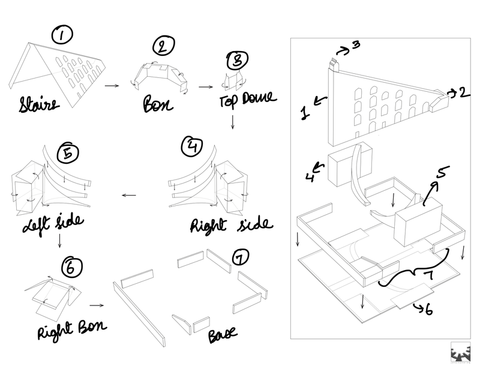 1
Staire
2
Box
3
Top Dome
4
Right side
5
Left side
6
Right Box
7
Base
3
2
1
4
5
7
6